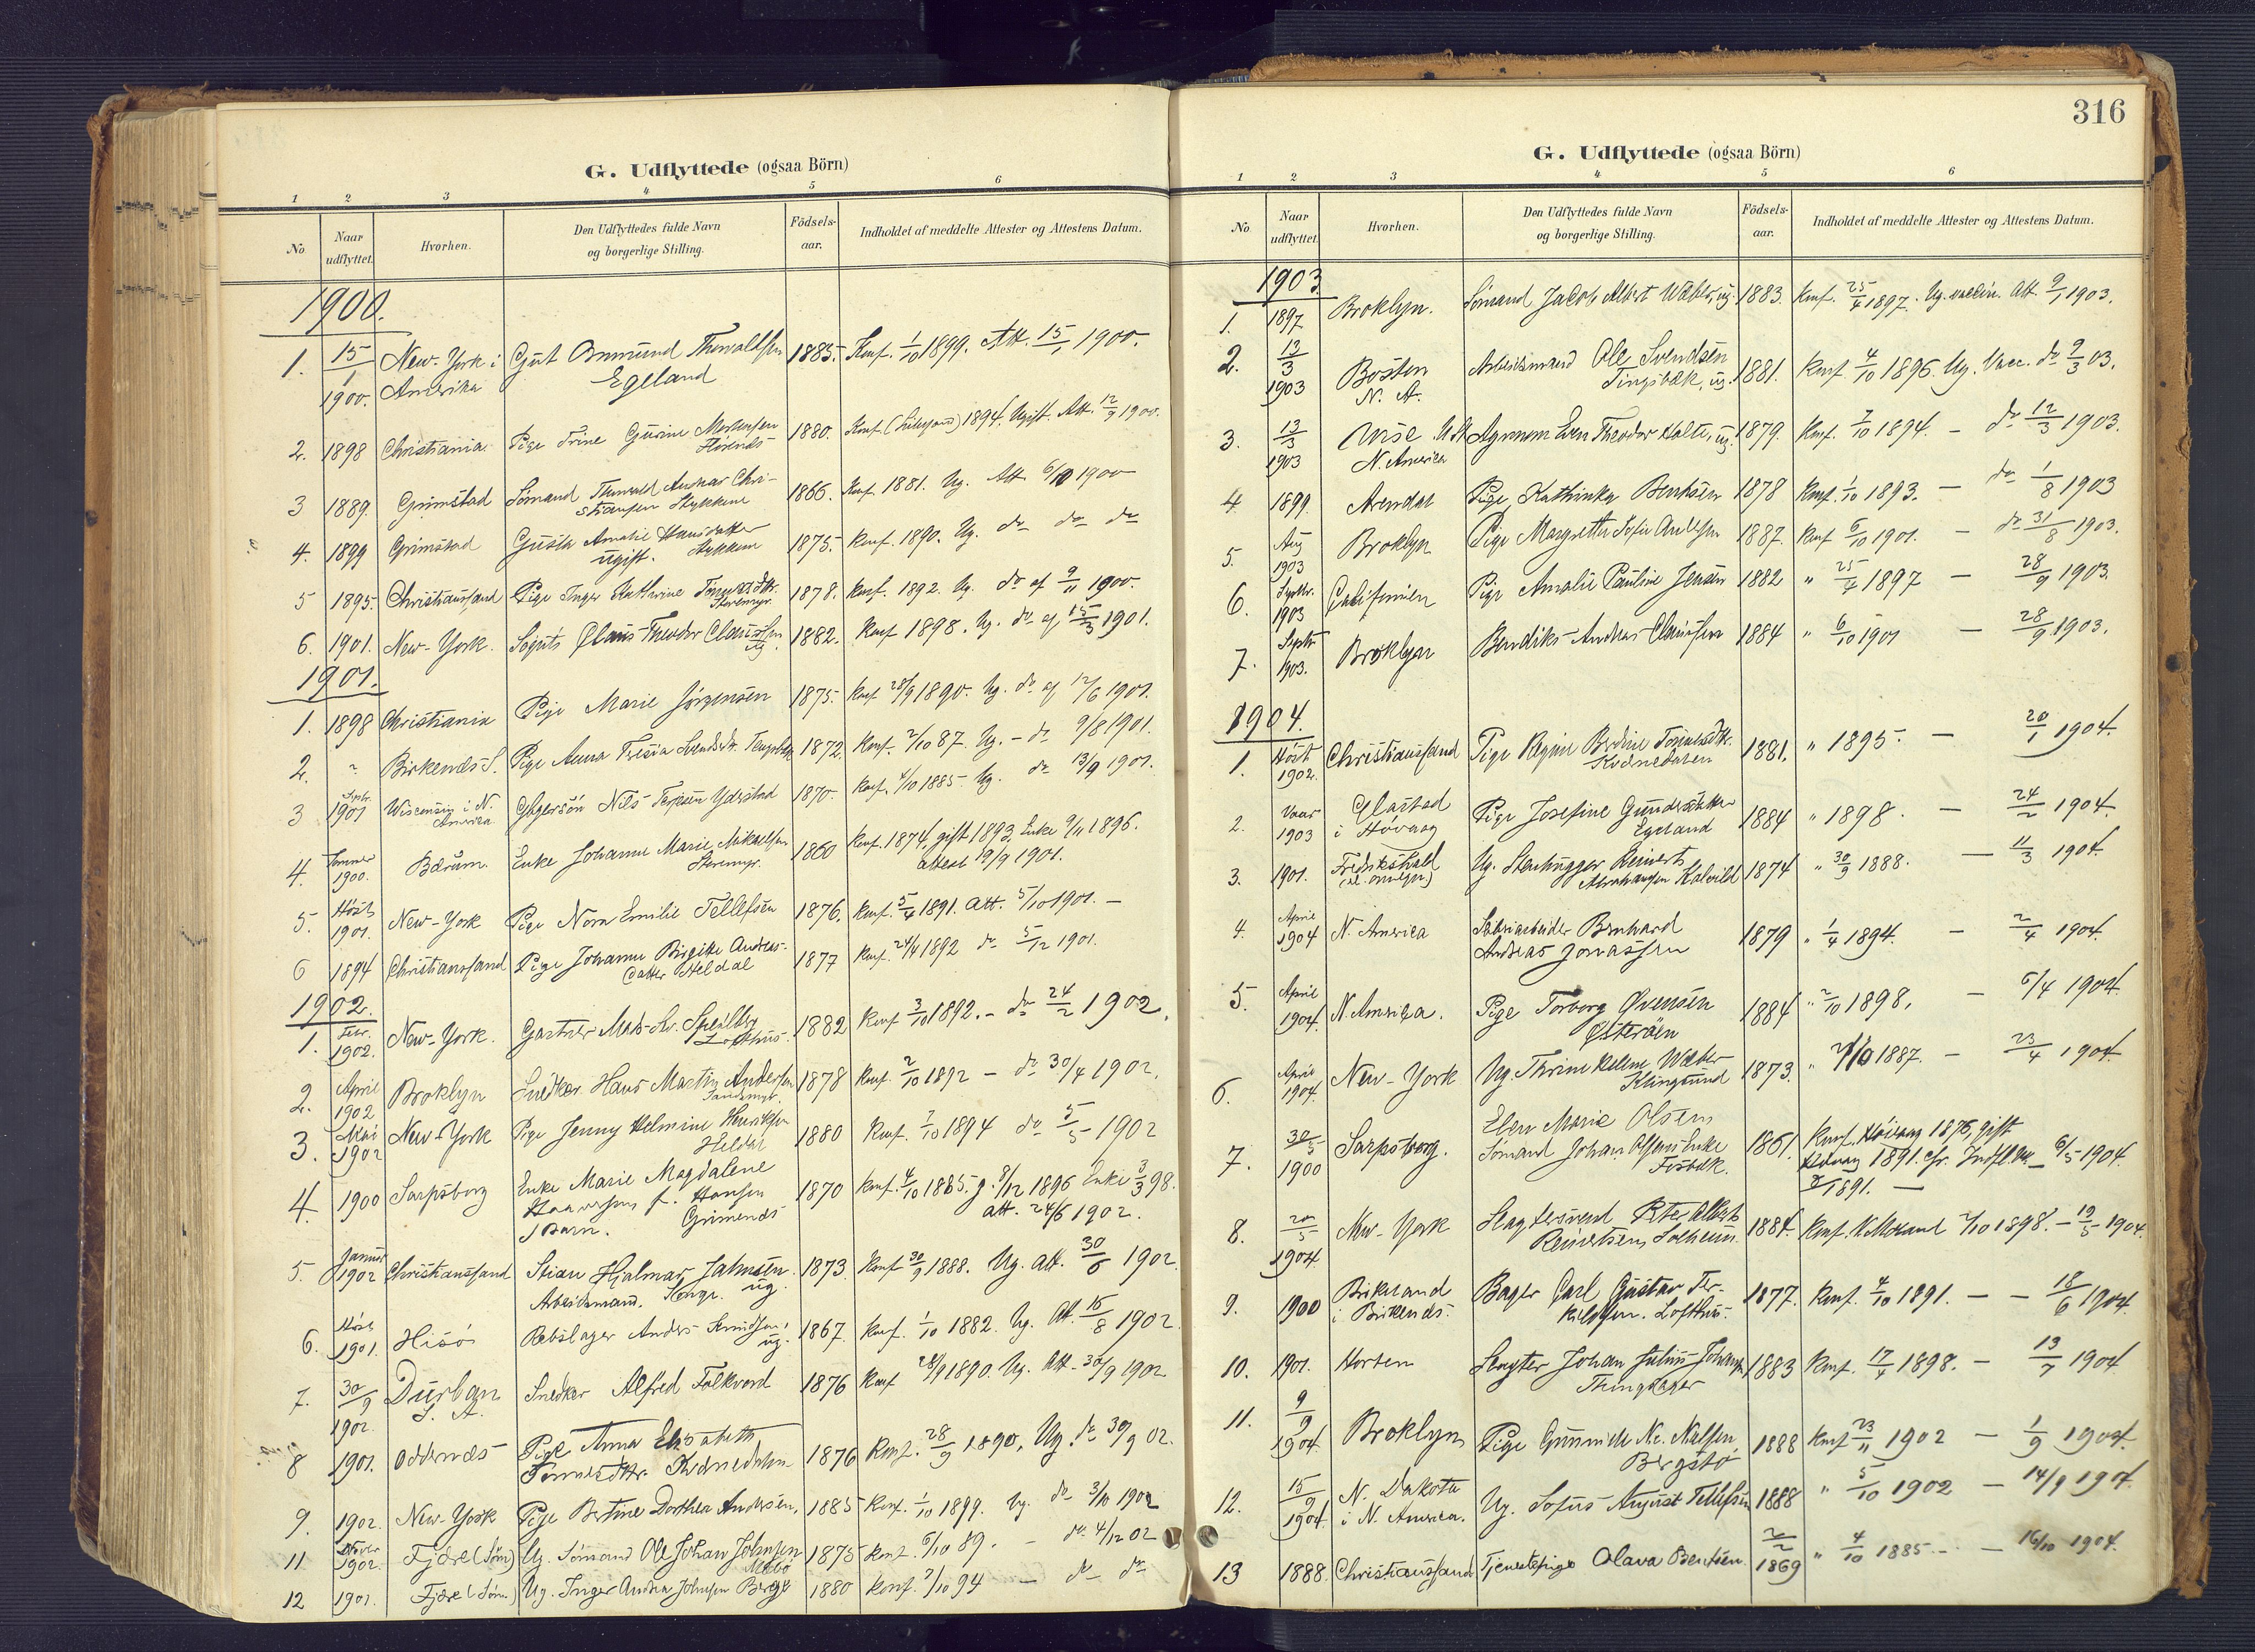 G. Udflyttede (ogsaa Börn)
1 2 3 4 5 6
No Naar udflyttet. Hvorhen. Den Udflyttedes fulde Navn og borgerlige Stilling. Födsels-aar. Indholdet af meddelte Attester og Attestens Datum.
1900.
1. 15/1 1900. New-York i Amerika Gut Onmund Thorvaldsen Egeland 1885. Konf. 1/10 1899. Att. 15/1 1900.
2. 1898 Christiania Pige Trine Gurine Mortensen 1880. Konf. 1894. Ugift. Att. 12/9 1900.
3 1889. Grimstad Sömand Thorvald Andreas Christiansen Stykkene 1866. Konf. 1881. Ug. Att. 6/10 1900
4. 1899 Grimstad Gusta Amalie Hansdatter ugift. Stykkene 1875. Konf. 1890. Ug. do do do
5 1895. Christianssand Pige Inger Kathrine 1878. Konf. 1892. Ug. do af 9/11 1900.
6. 1901. New-York. Claus Theodor Claussen ug. 1882. Konf 1898. Ug. do af 15/3 1901.
1901.
1. 1898 Christiania Pige Marie Jörgensen 1875. Konf 28/9 1890. Ug. do af 12/6 1901.
2. " Birkenæs S. Pige Anna Tresia Svendsdtr. 1872. Konf. 2/10 87. Ug. - do 9/8 1901.
3 Septbr. 1901 Wisconsin i N. America Nils Terjesen Ydestad 1870. Konf. 4/10 1885 Ug. do 13/9 1901.
4. Sommer 1900. Bærum. Enke Johanne Marie Mikaelsen 1860 Konf. 1874, gift 1893, Enke 9/11 1896. attest 19/9 1901.
5. Höst 1901. New-York Pige Nora Emilie Tellefsen 1876. Konf. 5/4 1891. Att. 5/10 1901. -
6 1894 Christianssand Pige Johanne Birgitte Andreasdatter Heldal 1877 Konf. 24/4 1892 do 5/12 1901.
1902.
1. Febr. 1902. New-York. Gartner Mads Lofthus 1882 Konf 3/10 1892. - do 24/2 1902.
2. April 1902 Broklyn Snedker Hans Martin Andersen 1878 Konf. 2/10 1892 - do 30/4 1902.
3. Mai 1902 New-York Pige Jenny Helmine Henriksen Heldal 1880 Konf. 7/10 1894 do 5/5 1902
4. 1900 Sarpsborg Enke Marie Magdalene f. Hansen Grimenæs 1 Barn. 1870 Konf. 4/10 1885. g. 8/12 1896 Enke 3/3 98. att. 24/6 1902.
5. Januar 1902 Christianssand Stian Hjalmar Jahnsen Arbeidsmand. ug 1873 Konf 30/9 1888. Ug. att. 30/6 1902.
6. Höst 1901. Hisö Rebslager Anders Knudsen, ug. 1867. Konf. 1/10 1882. Ug. Att. 15/8 1902.
7. 30/9 1902. Durban S. A. Snedker Alfred Folkvord 1876 Konf 28/9 1890. Ug. Att. 30/9 1902
8 1901. Oddernæs Pige Anna Elisabeth 1876 Konf. 28/9 1890, Ug. do 30/9 02.
9. 1902. New-York Pige Bertine Dorthea Andersen, 1885 Konf. 1/10 1899. Ug. do 3/10 1902
11 1902. Fjære Ug. Sömand Ole Johan Johnsen 1875 Konf. 6/10 89. - do 4/12 02
12 1901. Fjære Ug. Inger Andrea Johnsen Berge 1880 Konf. 7/10 94 - do do
316
G. Udflyttede (ogsaa Börn)
1 2 3 4 5 6
No Naar udflyttet. Hvorhen. Den Udflyttedes fulde Navn og borgerlige Stilling. Födsels-aar. Indholdet af meddelte Attester og Attestens Datum.
1903.
1. 1897 Broklyn. Sömand Jacob Albert Wæber, ug. 1883. Konf. 25/4 1897. Ug. vaccin. Att. 9/1 1903.
2. 13/3 1903 Boston N. A. Arbeidsmand Ole Svendsen Tingsbæk, ug. 1881. Konf. 4/10 1896. Ug. Vacc. do 9/3 03.
3. 13/3 1903 N. America Even Theodor Holte, ug. 1879. Konf. 7/10 1894. - do 12/3 1903.
4 1899. Arendal Pige Kathinka Bentsen 1878 Konf. 1/10 1893. - do 1/8 1903
5. Aug 1903 Broklyn Pige Margrethe Sofie 1887. Konf 6/10 1901. - do 31/8 1903.
6. Septbr. 1903 Californien Pige Amalie Pauline Jensen 1882 " 25/4 1897 - 28/9 1903.
7. Septbr 1903. Broklyn Bendiks Andreas Claussen 1884 " 6/10 1901 - 28/9 1903.
1904.
1. Höst 1902. Christianssand Pige Regine Berdine Tönnesdtr. Kvænedalen 1881. " 1895. - 20/1 1904.
2. Vaar 1903 Glastad i Hövaag Pige Josefine Gundersdatter Egeland 1884 " 1898. - 24/2 1904.
3. 1901. Fredrikshald Ug. Stenhugger Reinert Abrahamsen 1874 " 30/9 1888. - 11/3 1904.
4. April 1904 N. America Fabrikarbeider Bernhard Andreas Jonassen 1879 " 1/4 1894. - 2/4 1904.
5 April 1904. N. America. Pige Torborg Evensen Österöen 1884 " 2/10 1898, - 6/4 1904.
6. April 1904. New-York Ug. Thrine Helene Wæber Klingsund 1873. " 1887. - 23/4 1904.
7. 30/5 1900 Sarpsborg. Elen Marie Olsen Sömand Johan Olssens Enke Fosbæk. 1861. Konf. Höivaag 1876, gift Hövaag 1891. cfr. - 6/5 1904. 1891. -
8. 20/5 1904 New-York Slagtersvend Peter Albert Reiertsen, Solheim 1884. Konf. V. Moland 2/10 1898. - 19/5 1904.
9. 1900 Birkeland i Birkenæs. Bager Carl Gustav Terkildsen. Lofthus. 1877. Konf. 4/10 1891. - - 18/6 1904.
10. 1901. Horten Slagter Johan Julius Johansen 1883 Konf. 17/4 1898. - 13/7 1904
11. 9/9 1904. Broklyn Pige Gunnild Nielsen, Bergstø 1888 Konf 23/11 1902 - 1/9 1904.
12. 15/9 1904. N. Dakota i N. America. Ug. Sofus August Tellefsen 1888 " 5/10 1902 - 14/9 1904.
13 1888. Christianssand Tjenestepige Olava Bentsen. 2/2 1869 " 4/10 1885 - - 16/10 1904.